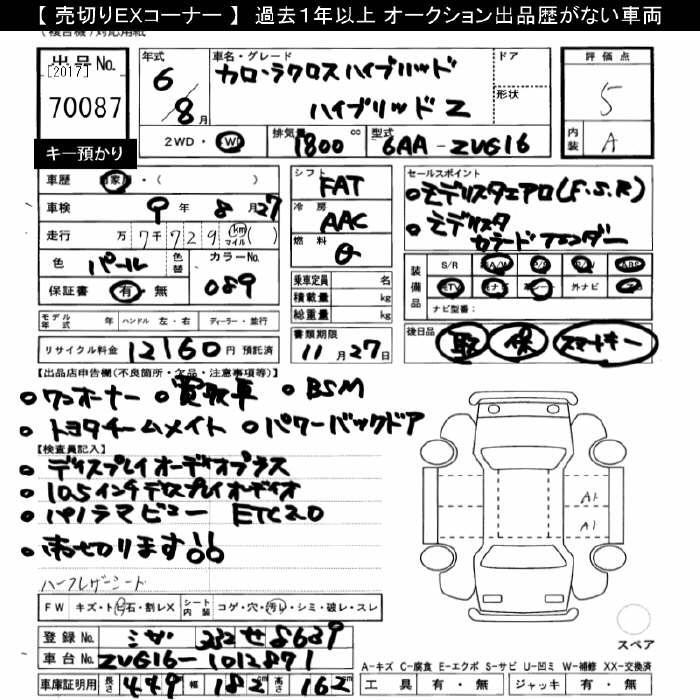 【 売切りEXコーナー 】 過去１年以上 オークション出品歴がない車両
出品 No.
[2017]
70087
キー預かり
年式
6/8月
車名・グレード
カローラクロスハイブリッド
ハイブリッド Z
ドア
形状
評価点
5
内装
A
2WD・4WD
排気量
1800 cc
型式
6AA-ZVG16
車歴 自家用・( )
車検 9年 8月27
走行 万 7千 7 2 9 km マイル ( )
色 パール 色替 カラーNo. 089
保証書 有・無
シフト FAT
冷房 AAC
燃料
乗車定員 名
積載量 kg
総重量 kg
セールスポイント
モデリスタエアロ(F.S.R)
モデリスタ
カラードフェンダー
装備品
S/R A/W P/S P/W ABS
TV ナビ 革シート 外ナビ
ナビ型番:
モデル年式 年 ハンドル 左・右 ディーラー・並行
リサイクル料金 12160 円 預託済
書類期限 11月27日
後日品 取 保 スマートキー
【出品店申告欄(不良箇所・欠品・注意事項等)】
ワンオーナー 買取車 BSM
トヨタチームメイト パワーバックドア
【検査員記入】
ディスプレイオーディオプラス
10.5インチディスプレイオーディオ
パノラマビュー ETC2.0
売切ります!!
ハーフレザーシート
A1
A1
FW キズ・トビ石・割レX シート内装 コゲ・穴・汚レ・シミ・破レ・スレ
登録 No. 332 せ 8639
車台 No. ZVG16-1012871
車庫証明用 長さ 449 幅 182 cm 高さ 162 cm
スペア
A-キズ C-腐食 E-エクボ S-サビ U-凹ミ W-補修 XX-交換済
工具 有・無 ジャッキ 有・無